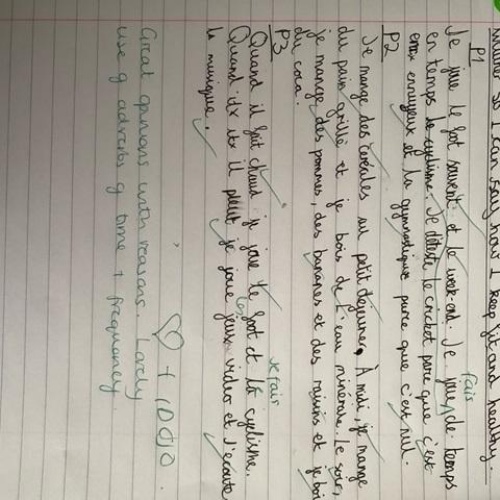 so I can say how I keep fit and healthy
P1
Je joue le foot souvent et le week-end. Je joue de temps
fais
en temps le cyclisme. Je déteste le cricket parce que c'est
ennuyeux et la gymnastique parce que c'est nul.
P2
Je mange des céréales au petit dejeuner. À midi, je mange
du pain grillé et je bois de l'eau minérale. Le soir,
je mange des pommes, des bananes et des raisins et je boi
du coca.
P3
je fais
Quand il fait chaud je joue le foot et le cyclisme.
Quand il pleut je joue jeux video et j'écoute
la musique.
♡ + 1,000.
Great opinions with reasons. Lovely
use of adverbs of time + frequency.